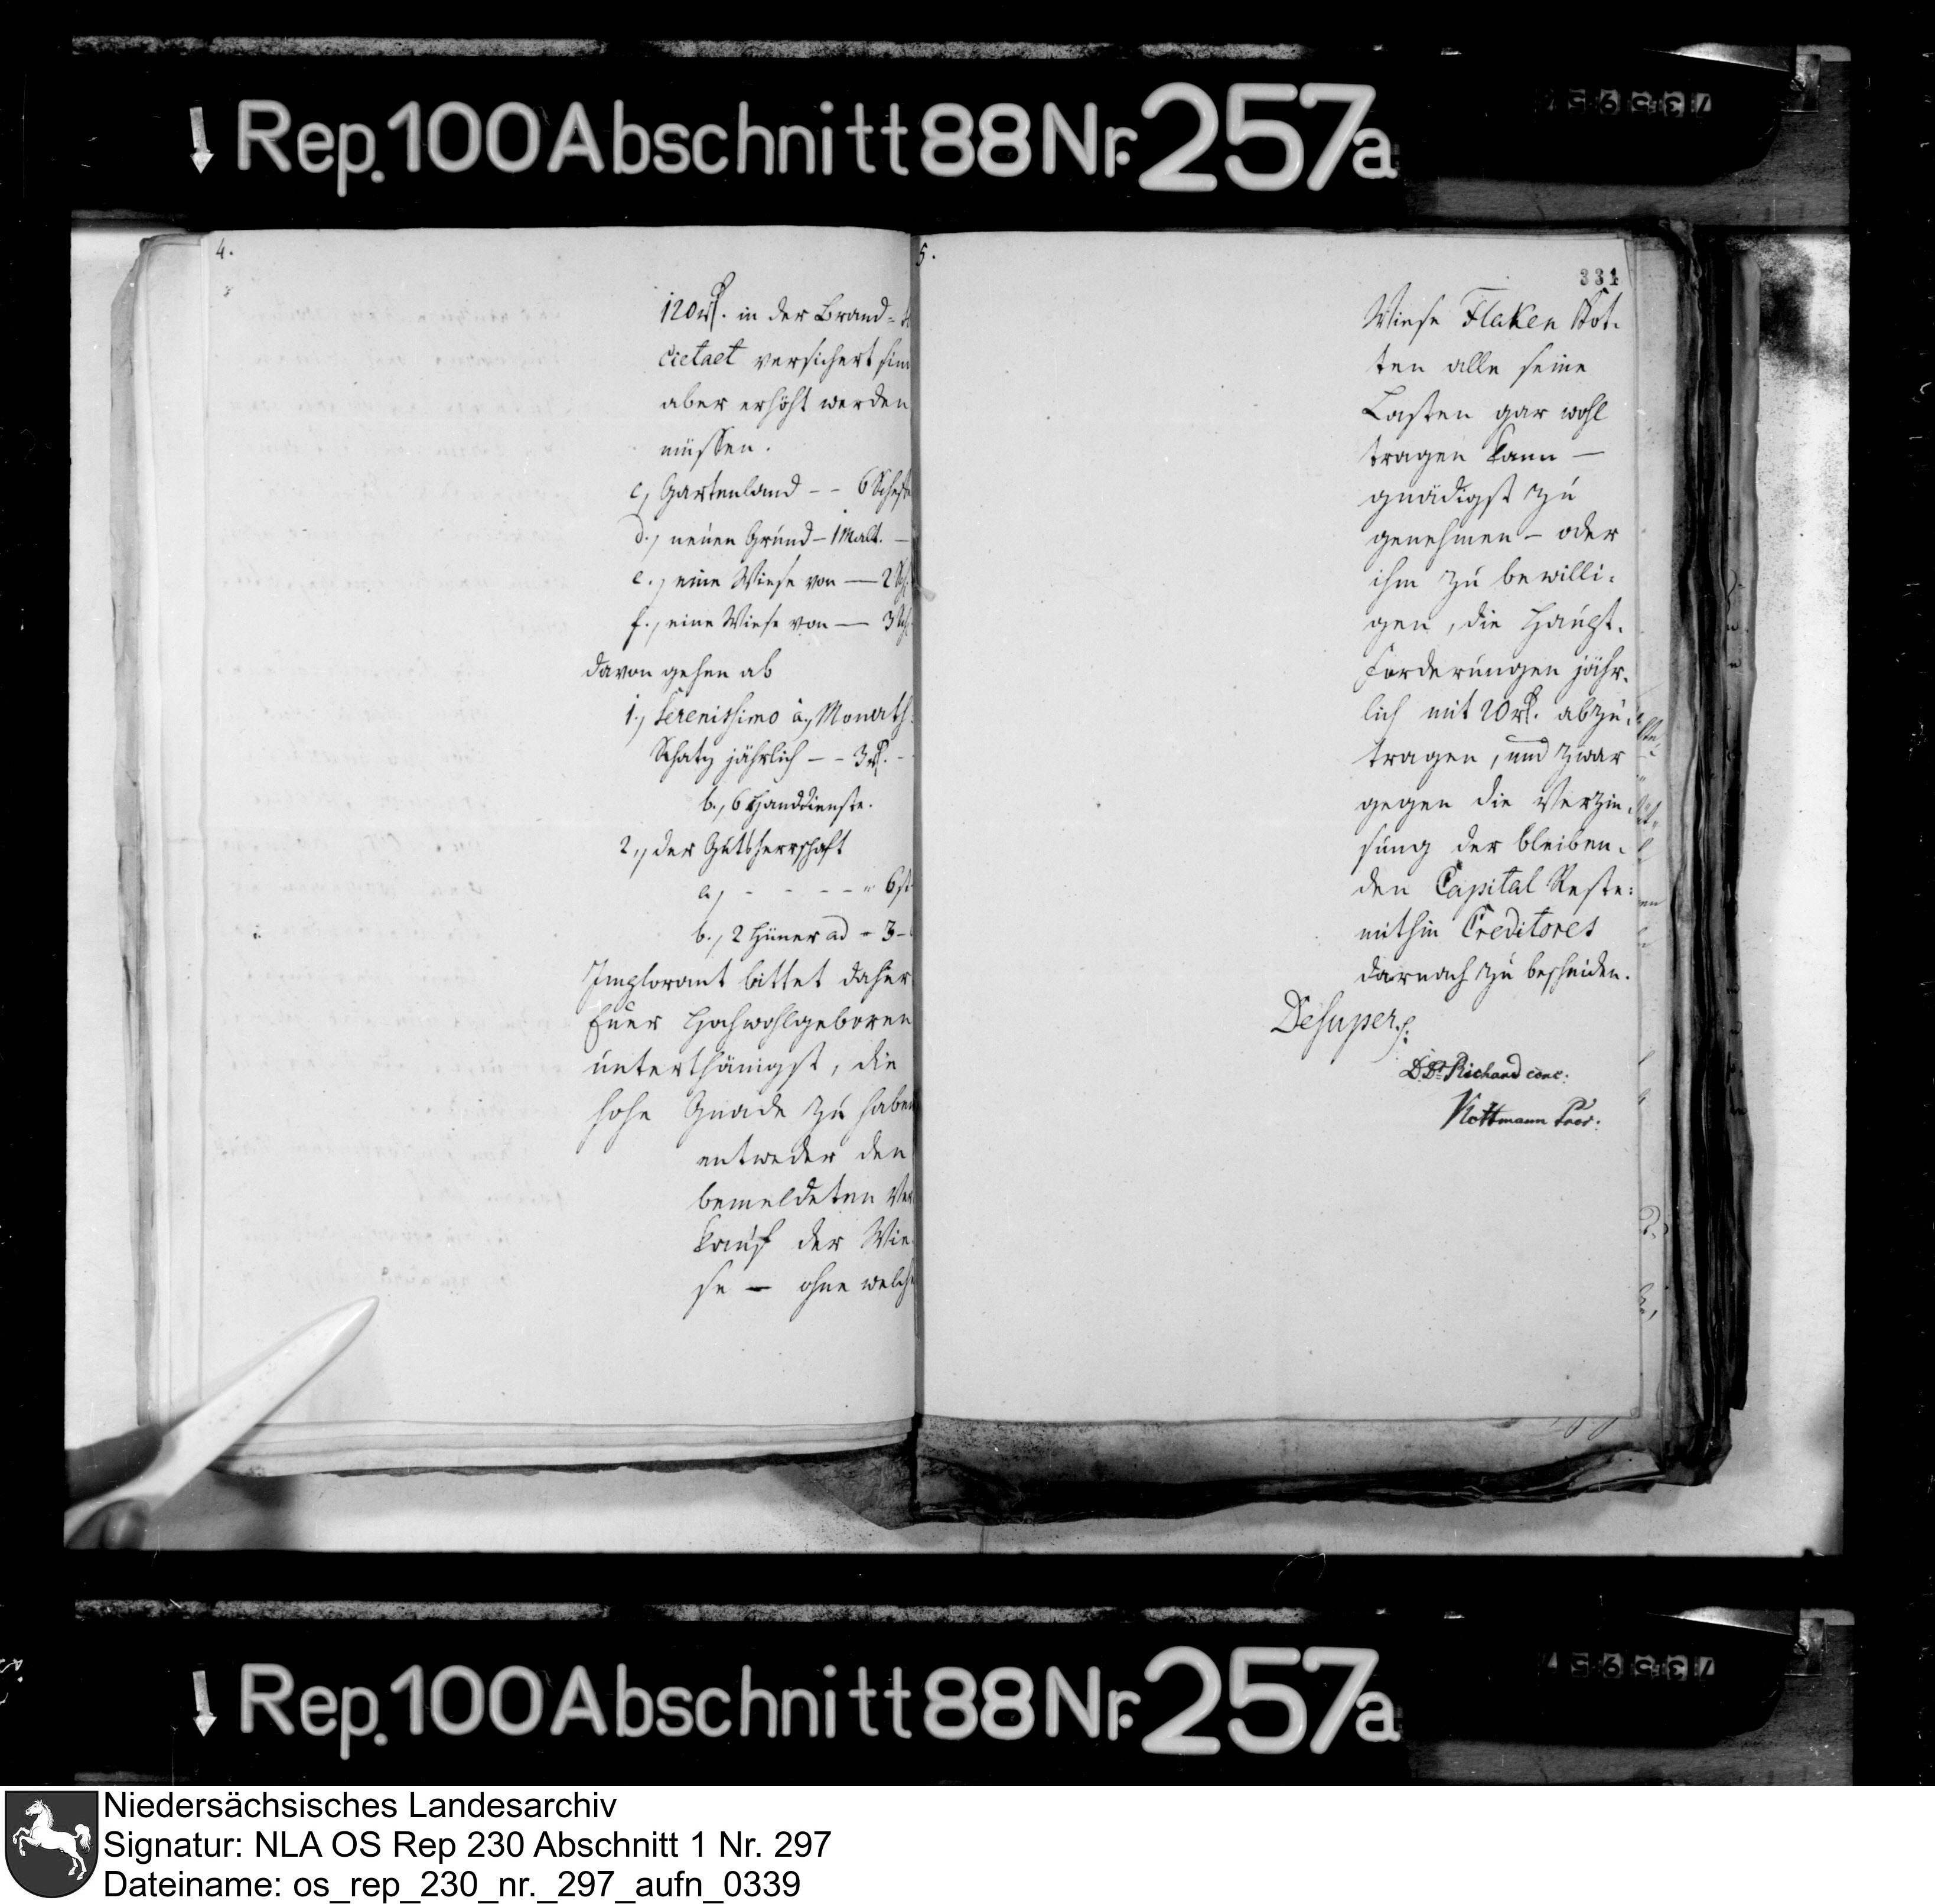 Rep. 100 Abschnitt 88 Nr. 257a
4.
120 rt. in der Brand=
cietaet versichert sin
aber erhöht werden
müssen.
c, Gartenland - - 6 Scheff
d., neuen Grund - 1 Malt. -
e., eine Wiese von — 2 Sch
f., eine Wiese von — 3 Sch
davon gehen ab
1., Serenissimo a., Monath
Schatz jährlich - - 3 rt. -
b., 6 Handdienste.
2., der Gutsherrschaft
a, - - - - - " 6 ß
b., 2 Hüner ad = 3 -
Implorant bittet daher
Euer Hochwohlgeboren
unterthänigst, die
hohe Gnade zu haben
entweder den
bemeldeten Ver
kauf der Wie
se — ohne welch
5.
331
Wiese Flaken Kot.
ten alle seine
Lasten gar wohl
tragen kann —
gnädigst zu
genehmen - oder
ihm zu bewilli=
gen, die Haupt.
forderungen jähr.
lich mit 20 rt. abzu=
tragen, und zwar
gegen die Verzin=
sung der bleiben.
den Capital Reste:
mithin Creditores
darnach zu bescheiden.
Desuper.
D. Dr. Richard conc.
Kottmann Proc.
Rep. 100 Abschnitt 88 Nr. 257a
Niedersächsisches Landesarchiv
Signatur: NLA OS Rep 230 Abschnitt 1 Nr. 297
Dateiname: os_rep_230_nr._297_aufn_0339